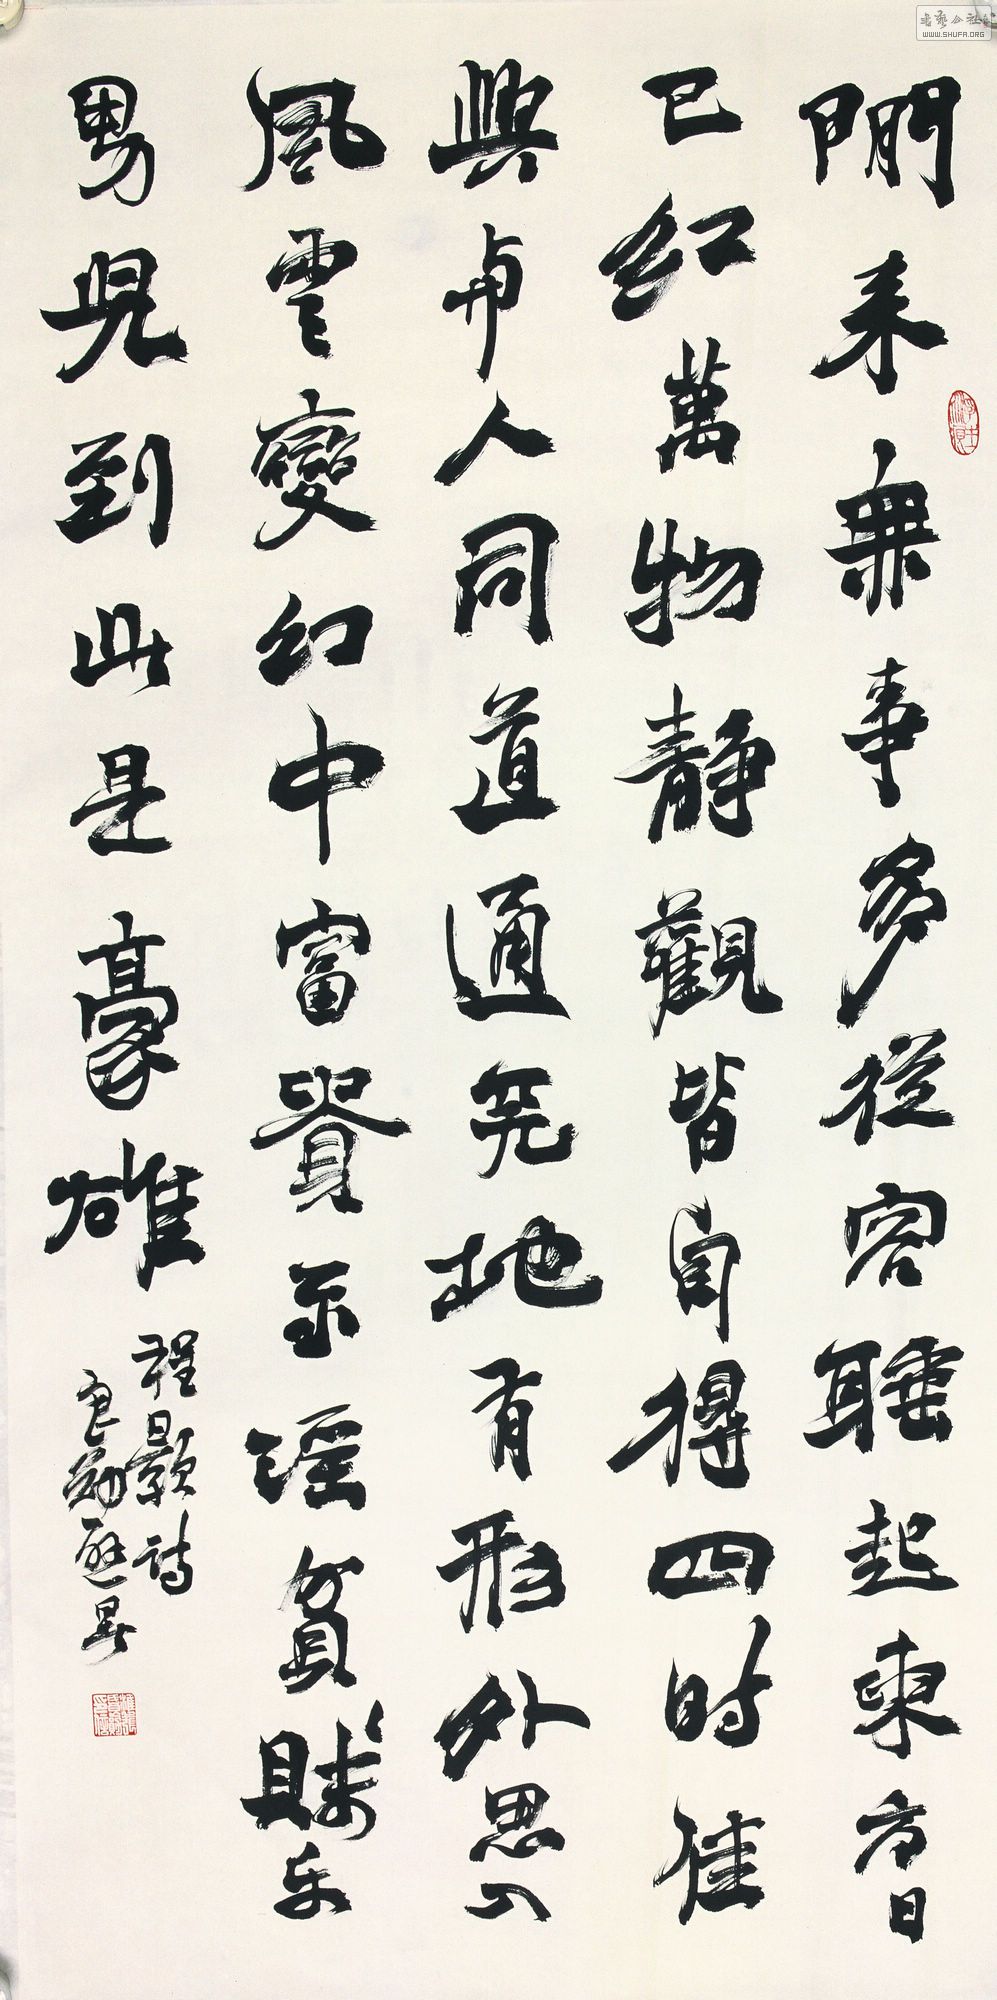 書藝公社
WWW.SHUFA.ORG
閒来無事多從容睡起東方日
已紅萬物静觀皆自得四时佳
興与人同道通天地有形外思入
風雲變幻中富貴不淫貧賤乐
男兒到此是豪雄
程顥詩